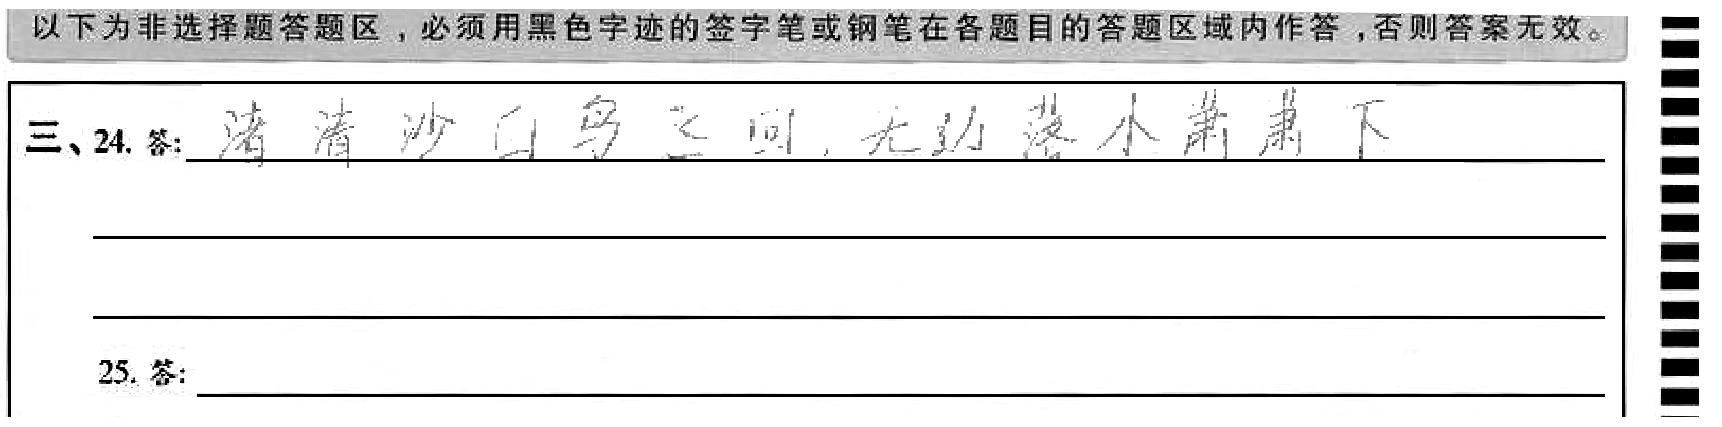 以下为非选择题答题区，必须用黑色字迹的签字笔或钢笔在各题目的答题区域内作答，否则答案无效。
三、24. 答: 渚清沙白鸟飞回，无边落木萧萧下
25. 答: